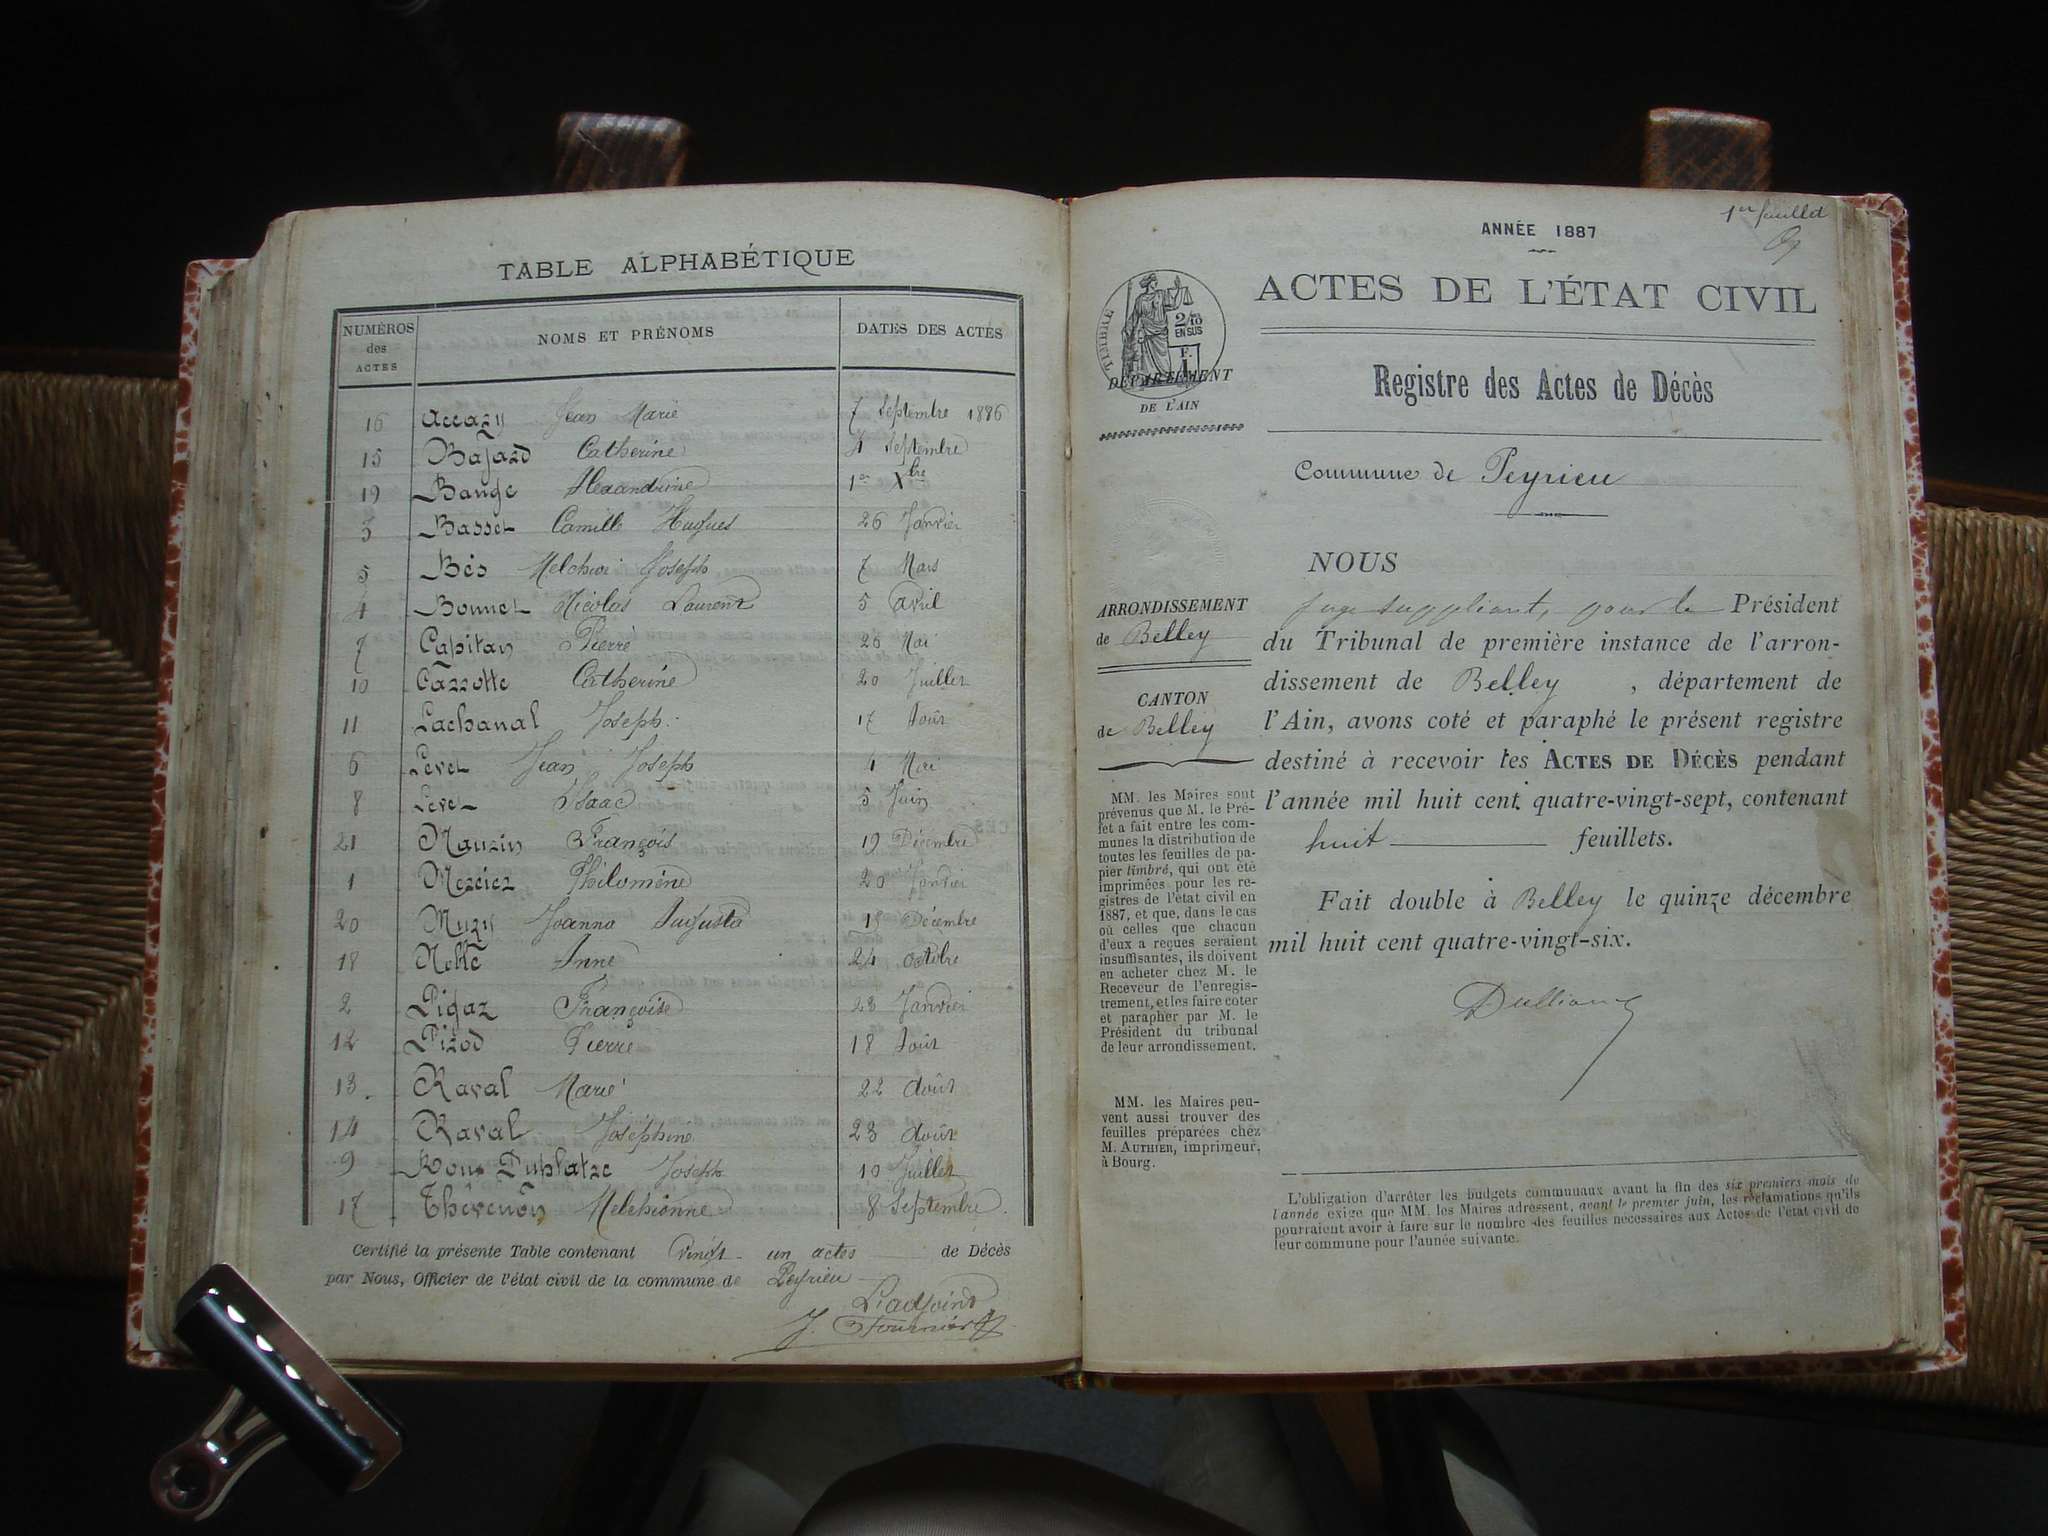 TABLE ALPHABÉTIQUE
NUMÉROS des ACTES NOMS ET PRÉNOMS DATES DES ACTES
16 Accazy Jean Marie 7 Septembre 1886
15 Bajard Catherine 4 Septembre
19 Bauge Alexandrine 1er Xbre
3 Basset Camille Hugues 26 Janvier
5 Bés Melchior Joseph 7 Mars
4 Bonnet Nicolas Laurent 5 avril
7 Capitan Pierre 26 Mai
10 Cazzotte Catherine 20 Juillet
11 Lachanal Joseph 17 Août
6 Levet Jean Joseph 4 Mai
8 Levet Isaac 5 Juin
21 Mauzin François 19 Décembre
1 Mercier Philomène 20 Janvier
20 Muzy Joanna Augusta 15 Décembre
18 Anne 24 octobre
2 Pigaz Françoise 23 Janvier
12 Pirod Pierre 18 Août
13 Raval Marie 22 août
14 Raval Joséphine 23 août
9 Joseph 10 Juillet
17 Thévenon Melchionne 8 Septembre
Certifié la présente Table contenant vingt un actes de Décès
par Nous, Officier de l'état civil de la commune de Peyrieu
L'adjoint
J. Fournier
1er feuillet
ANNÉE 1887
ACTES DE L'ÉTAT CIVIL
TIMBRE
2/10
EN SUS
F.
1
DÉPARTEMENT
DE L'AIN
Registre des Actes de Décès
Commune de Peyrieu
NOUS
juge suppléant, pour le Président
du Tribunal de première instance de l'arron-
dissement de Belley, département de
l'Ain, avons coté et paraphé le présent registre
destiné à recevoir les ACTES DE DÉCÈS pendant
l'année mil huit cent quatre-vingt-sept, contenant
huit feuillets.
Fait double à Belley le quinze décembre
mil huit cent quatre-vingt-six.
ARRONDISSEMENT
de Belley
CANTON
de Belley
MM. les Maires sont
prévenus que M. le Pré-
fet a fait entre les com-
munes la distribution de
toutes les feuilles de pa-
pier timbré, qui ont été
imprimées pour les re-
gistres de l'état civil en
1887, et que, dans le cas
où celles que chacun
d'eux a reçues seraient
insuffisantes, ils doivent
en acheter chez M. le
Receveur de l'enregis-
trement, et les faire coter
et parapher par M. le
Président du tribunal
de leur arrondissement.
MM. les Maires peu-
vent aussi trouver des
feuilles préparées chez
M. AUTHIER, imprimeur,
à Bourg.
L'obligation d'arrêter les budgets communaux avant la fin des six premiers mois de
l'année exige que MM. les Maires adressent, avant le premier juin, les réclamations qu'ils
pourraient avoir à faire sur le nombre des feuilles nécessaires aux Actes de l'état civil de
leur commune pour l'année suivante.